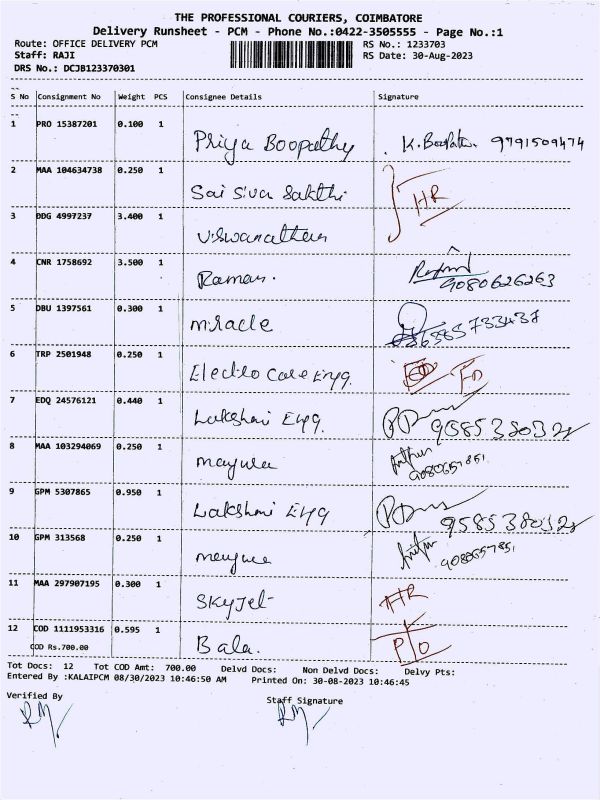 THE PROFESSIONAL COURIERS, COIMBATORE
Delivery Runsheet - PCM - Phone No.:0422-3505555 - Page No.:1
Route: OFFICE DELIVERY PCM RS No.: 1233703
Staff: RAJI RS Date: 30-Aug-2023
DRS No.: DCJB123370301
S No Consignment No Weight PCS Consignee Details Signature
1 PRO 15387201 0.100 1 Priya Boopathy 9791509474
2 MAA 104634738 0.250 1 Sai Siva Sakthi HR
3 DDG 4997237 3.400 1 Viswanathan
4 CNR 1758692 3.500 1 Raman. 9080626263
5 DBU 1397561 0.300 1 miracle
6 TRP 2501948 0.250 1 Electro Care Engg. FD
7 EDQ 24576121 0.440 1 Lakshmi Engg.
8 MAA 103294069 0.250 1
9 GPM 5307865 0.950 1 Lakshmi Engg
10 GPM 313568 0.250 1
11 MAA 297907195 0.300 1 SkyJet HR
12 COD 1111953316 0.595 1 Bala.
COD Rs.700.00
Tot Docs: 12 Tot COD Amt: 700.00 Delvd Docs: Non Delvd Docs: Delvy Pts:
Entered By :KALAIPCM 08/30/2023 10:46:50 AM Printed On: 30-08-2023 10:46:45
Verified By Staff Signature